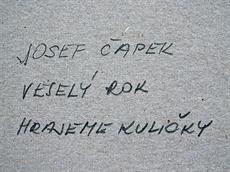 JOSEF ČAPEK
VESELÝ ROK
HRAJEME KULIČKY